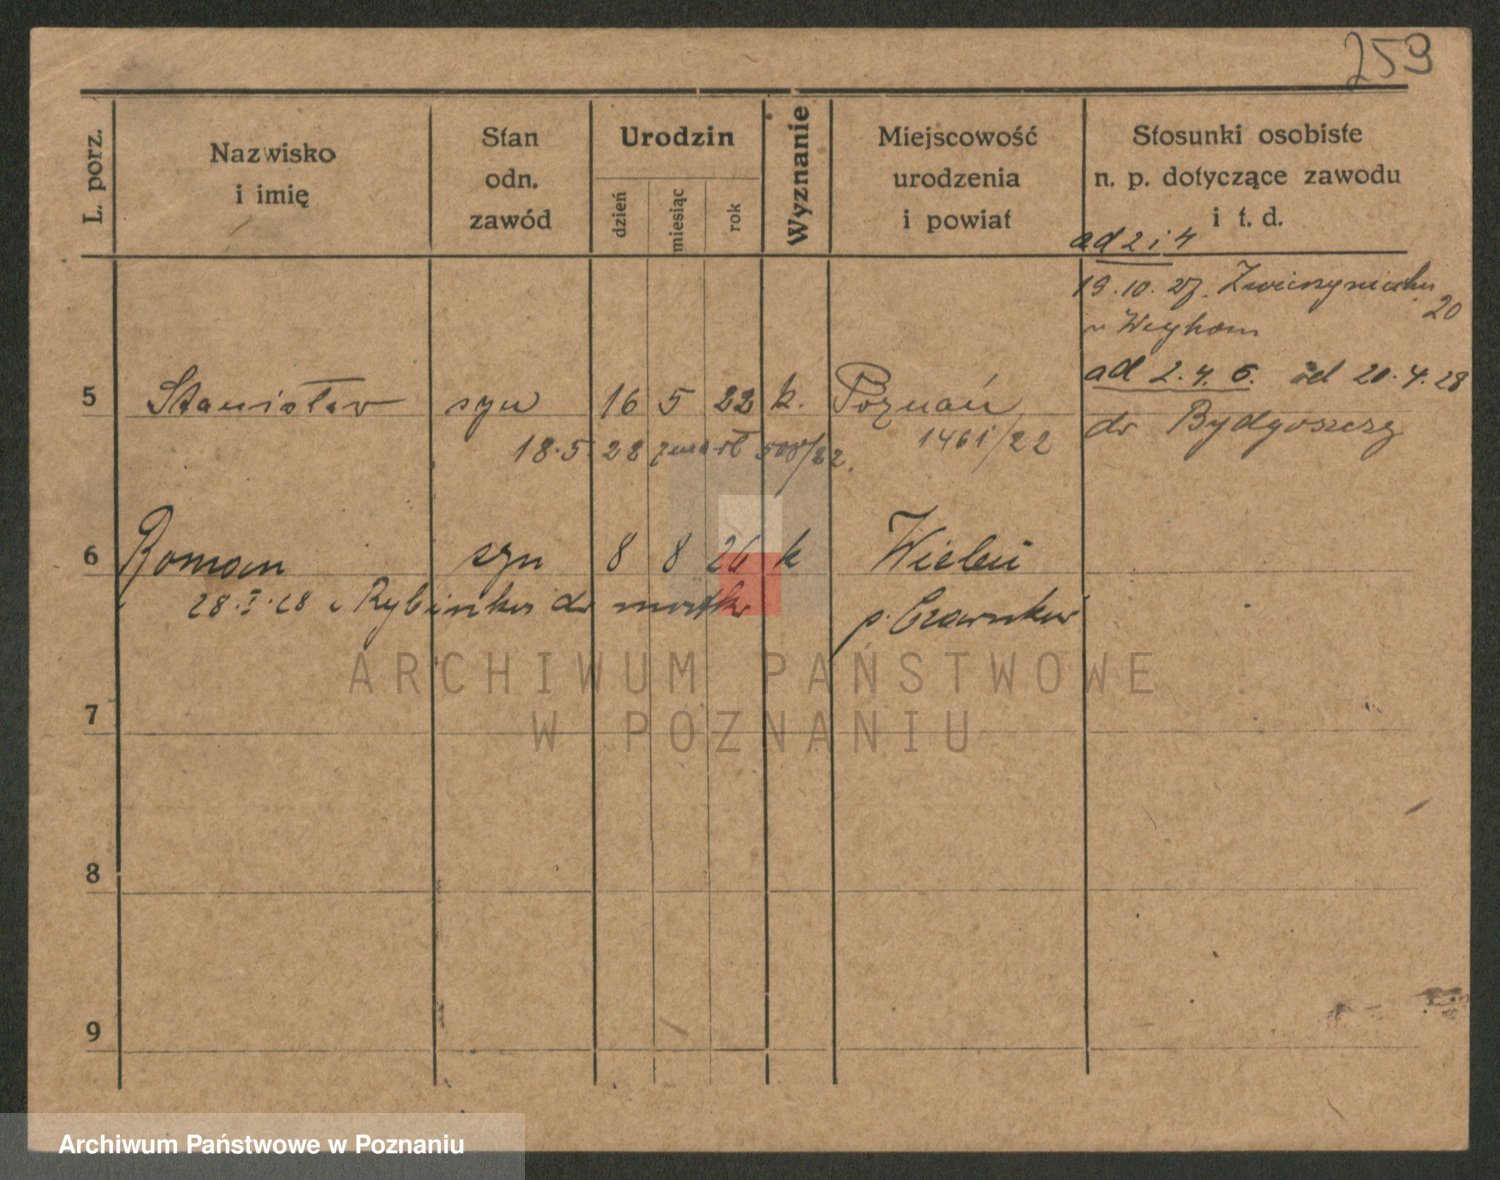 259
L. porz.
Nazwisko
i imię
Stan
odn.
zawód
Urodzin
dzień
miesiąc
rok
Wyznanie
Miejscowość
urodzenia
i powiat
Stosunki osobiste
n. p. dotyczące zawodu
i t. d.
ad 2 i 4
19.10.27. 20
ad 2. 4. 6. od 20.4.28
do Bydgoszcz
5 Stanisław syn 16 5 22 k. Poznań
18.5 22 zmarł 1461/22
6 Roman syn 8 8 26 k Wieleń
28.I.28 z do p. Czarnków
7
8
9
ARCHIWUM PAŃSTWOWE
W POZNANIU
Archiwum Państwowe w Poznaniu